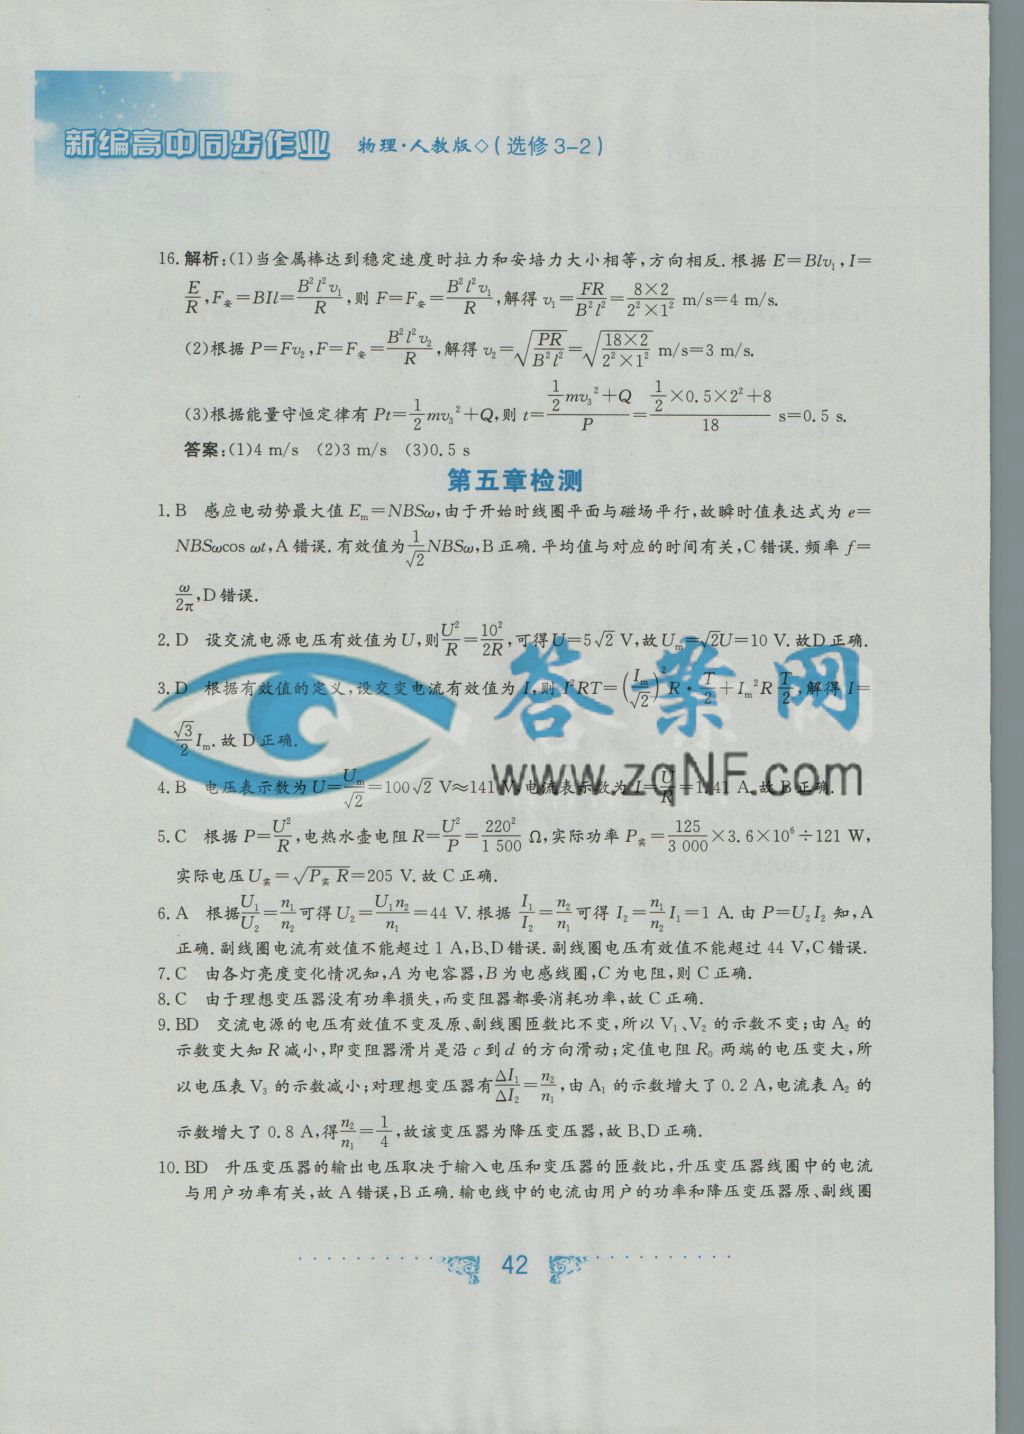 新编高中同步作业 物理·人教版◇(选修3-2)
16. 解析:(1)当金属棒达到稳定速度时拉力和安培力大小相等,方向相反. 根据 E=Blv₁, I=
E/R, F安=BIl=B²l²v₁/R, 则 F=F安=B²l²v₁/R, 解得 v₁=FR/B²l²=8×2/2²×1² m/s=4 m/s.
(2)根据 P=Fv₂, F=F安=B²l²v₂/R, 解得 v₂=√(PR/B²l²)=√(18×2/2²×1²) m/s=3 m/s.
(3)根据能量守恒定律有 Pt=1/2mv₃²+Q, 则 t=(1/2mv₃²+Q)/P=(1/2×0.5×2²+8)/18 s=0.5 s.
答案:(1)4 m/s (2)3 m/s (3)0.5 s
第五章检测
1. B 感应电动势最大值 Eₘ=NBSω,由于开始时线圈平面与磁场平行,故瞬时值表达式为 e=
NBSωcos ωt,A错误. 有效值为1/√2 NBSω,B正确. 平均值与对应的时间有关,C错误. 频率 f=
ω/2π,D错误.
2. D 设交流电源电压有效值为U,则U²/R=10²/2R,可得U=5√2 V,故Uₘ=√2U=10 V. 故D正确.
3. D 根据有效值的定义,设交变电流有效值为 I,则 I²RT=(Iₘ/√2)²R·T/2+Iₘ²R T/2,解得 I=
√3/2 Iₘ. 故 D正确.
4. B 电压表示数为U=Uₘ/√2=100√2 V≈141 V,电流表示数为 I=U/R=1.41 A. 故 B正确.
5. C 根据 P=U²/R,电热水壶电阻R=U²/P=220²/1 500 Ω,实际功率 P实=125/3 000×3.6×10⁶÷121 W,
实际电压U实=√(P实 R)=205 V. 故C正确.
6. A 根据U₁/U₂=n₁/n₂可得U₂=U₁n₂/n₁=44 V. 根据 I₁/I₂=n₂/n₁可得 I₂=n₁/n₂ I₁=1 A. 由 P=U₂I₂ 知,A
正确. 副线圈电流有效值不能超过 1 A,B、D错误. 副线圈电压有效值不能超过 44 V,C错误.
7. C 由各灯亮度变化情况知,A为电容器,B为电感线圈,C为电阻,则C正确.
8. C 由于理想变压器没有功率损失,而变阻器都要消耗功率,故C正确.
9. BD 交流电源的电压有效值不变及原、副线圈匝数比不变,所以V₁、V₂ 的示数不变;由 A₂ 的
示数变大知R减小,即变阻器滑片是沿 c到d 的方向滑动;定值电阻R₀ 两端的电压变大,所
以电压表V₃ 的示数减小;对理想变压器有ΔI₁/ΔI₂=n₂/n₁,由 A₁ 的示数增大了 0.2 A,电流表 A₂ 的
示数增大了 0.8 A,得n₂/n₁=1/4,故该变压器为降压变压器,故 B、D正确.
10. BD 升压变压器的输出电压取决于输入电压和变压器的匝数比,升压变压器线圈中的电流
与用户功率有关,故 A错误,B正确. 输电线中的电流由用户的功率和降压变压器原、副线圈
42
答案网
www.zqNF.com